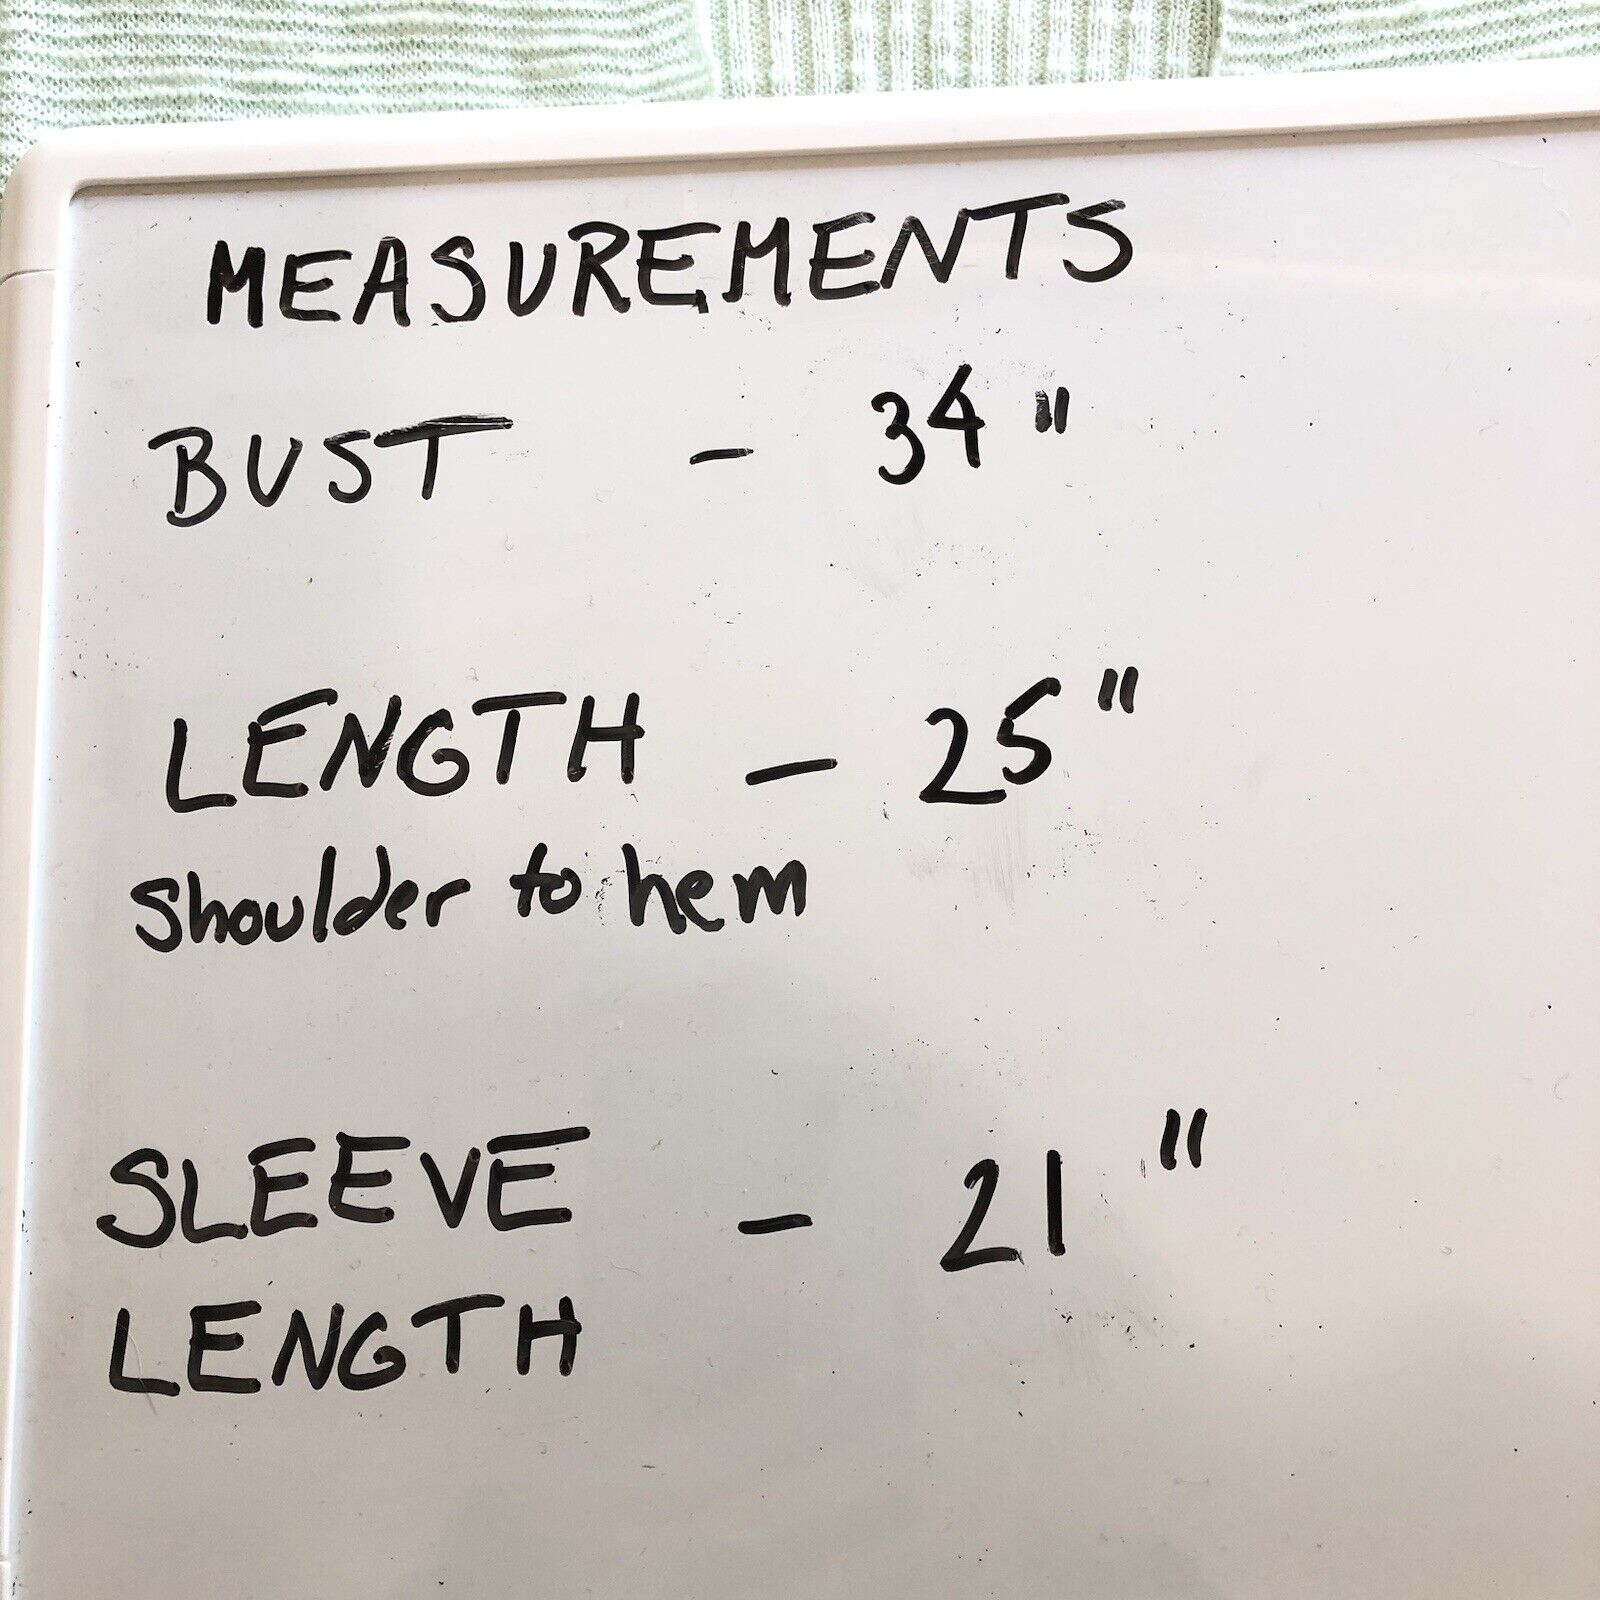 MEASUREMENTS
BUST - 34"
LENGTH - 25"
Shoulder to hem
SLEEVE - 21"
LENGTH